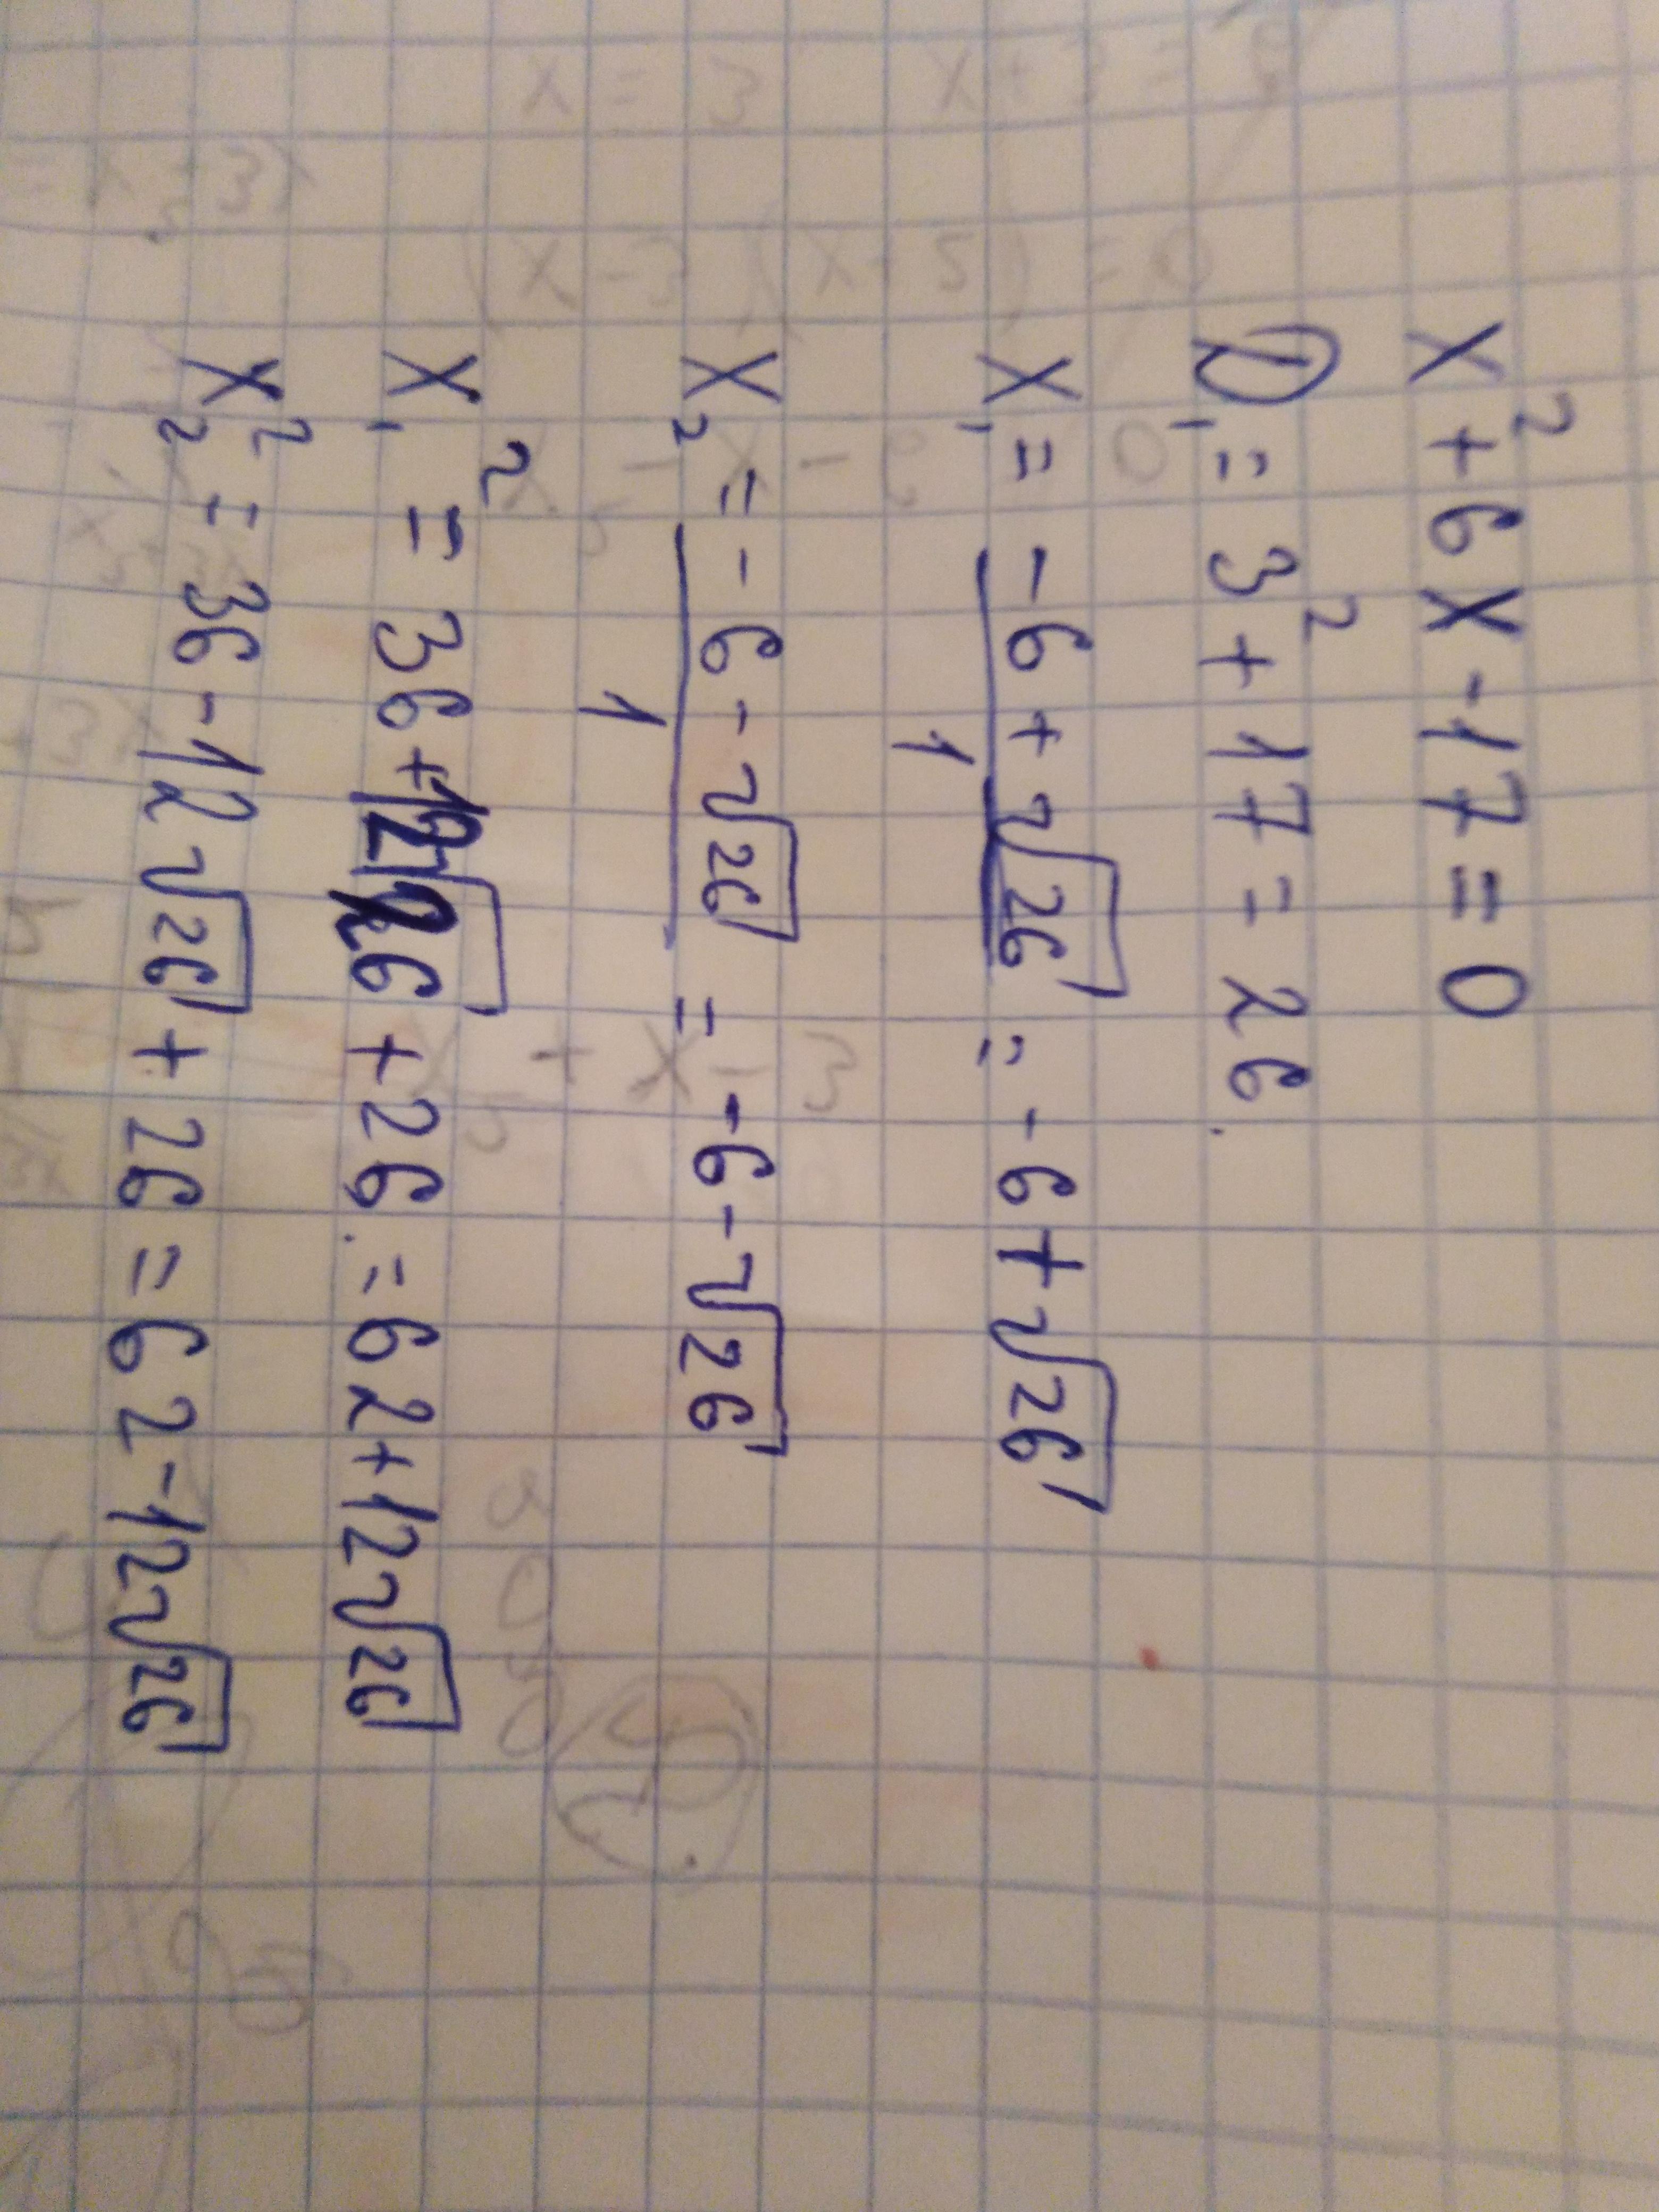 x² + 6x - 17 = 0
D₁ = 3² + 17 = 26
x₁ = (-6 + √26)/1 = -6 + √26
x₂ = (-6 - √26)/1 = -6 - √26
x₁² = 36 + 12√26 + 26 = 62 + 12√26
x₂² = 36 - 12√26 + 26 = 62 - 12√26